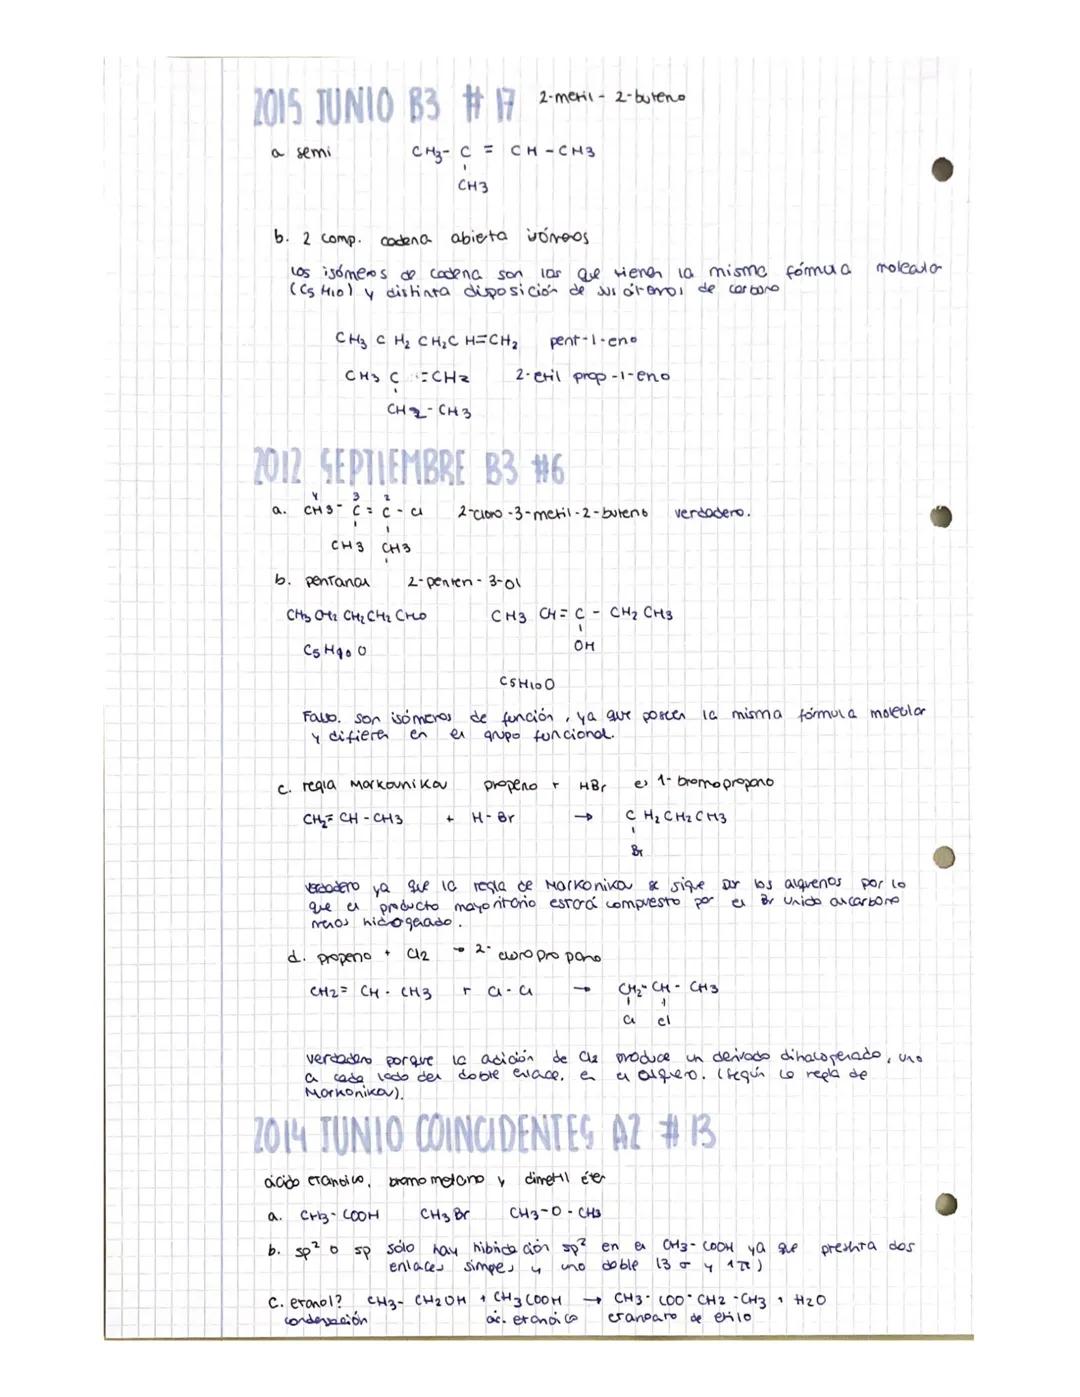 2015 JUNIO B3 # 17 2-metil - 2-buteno
a semi CH3- C = CH - CH3
CH3
b. 2 comp. cadena abierta isómeros
Los isómeros de cadena son los que tienen la misma fórmula molecular
(C5 H10) y distinta disposición de sus átomos de carbono
CH3 C H2 CH2C H=CH2 pent-1-eno
CH3 C =CH2 2-etil prop-1-eno
CH2-CH3
2012 SEPTIEMBRE B3 #6
4 3 2
a. CH3- C = C - Cl 2-cloro-3-metil-2-buteno verdadero.
CH3 CH3
b. pentanal 2-penten-3-ol
CH3 CH2 CH2CH2 CHO CH3 CH= C - CH2 CH3
C5 H10 O OH
C5H10O
Falso. son isómeros de función, ya que poseen la misma fórmula molecular
y difieren en el grupo funcional.
c. regla Markovnikov propeno + HBr es 1-bromopropano
CH2= CH - CH3 + H-Br → C H2CH2CH3
Br
verdadero ya que la regla de Markonikov se sigue por los alquenos por lo
que el producto mayoritario estará compuesto por el Br unido al carbono
menos hidrogenado.
d. propeno + Cl2 → 2- cloropropano
CH2= CH - CH3 + Cl-Cl → CH2- CH - CH3
Cl Cl
verdadero porque la adición de Cl2 produce un derivado dihalogenado, uno
a cada lado del doble enlace, en el alqueno. (según la regla de
Markonikov).
2014 JUNIO COINCIDENTES A2 # 13
ácido etanoico, bromometano y dimetil éter
a. CH3-COOH CH3 Br CH3-O-CH3
b. sp² o sp sólo hay hibridación sp² en el CH3-COOH ya que presenta dos
enlaces simples y uno doble (3 σ y 1π)
c. etanol? CH3- CH2OH + CH3COOH → CH3-COO-CH2-CH3 + H2O
condensación ác. etanoico etanoato de etilo